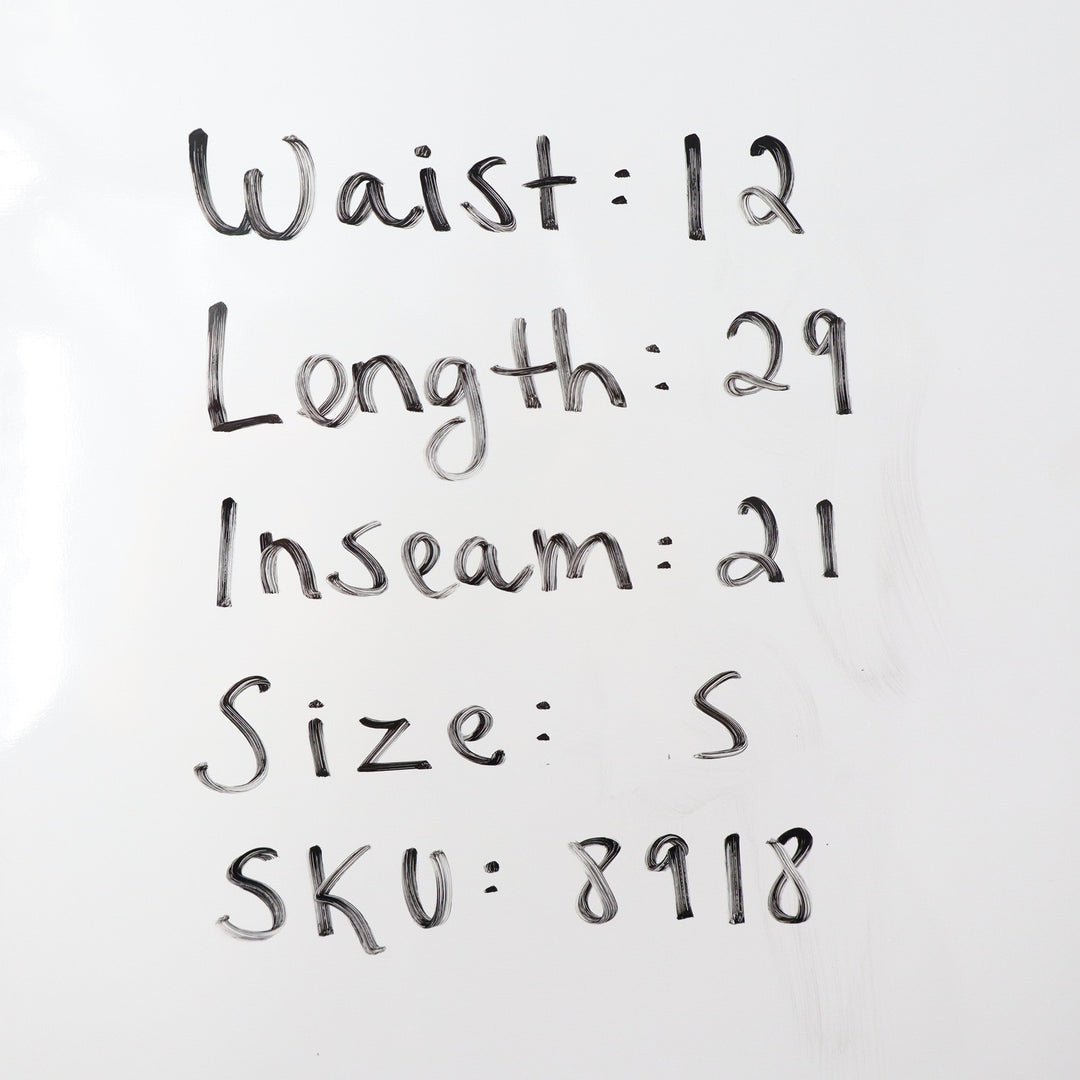 Waist: 12
Length: 29
Inseam: 21
Size: S
SKU: 8918